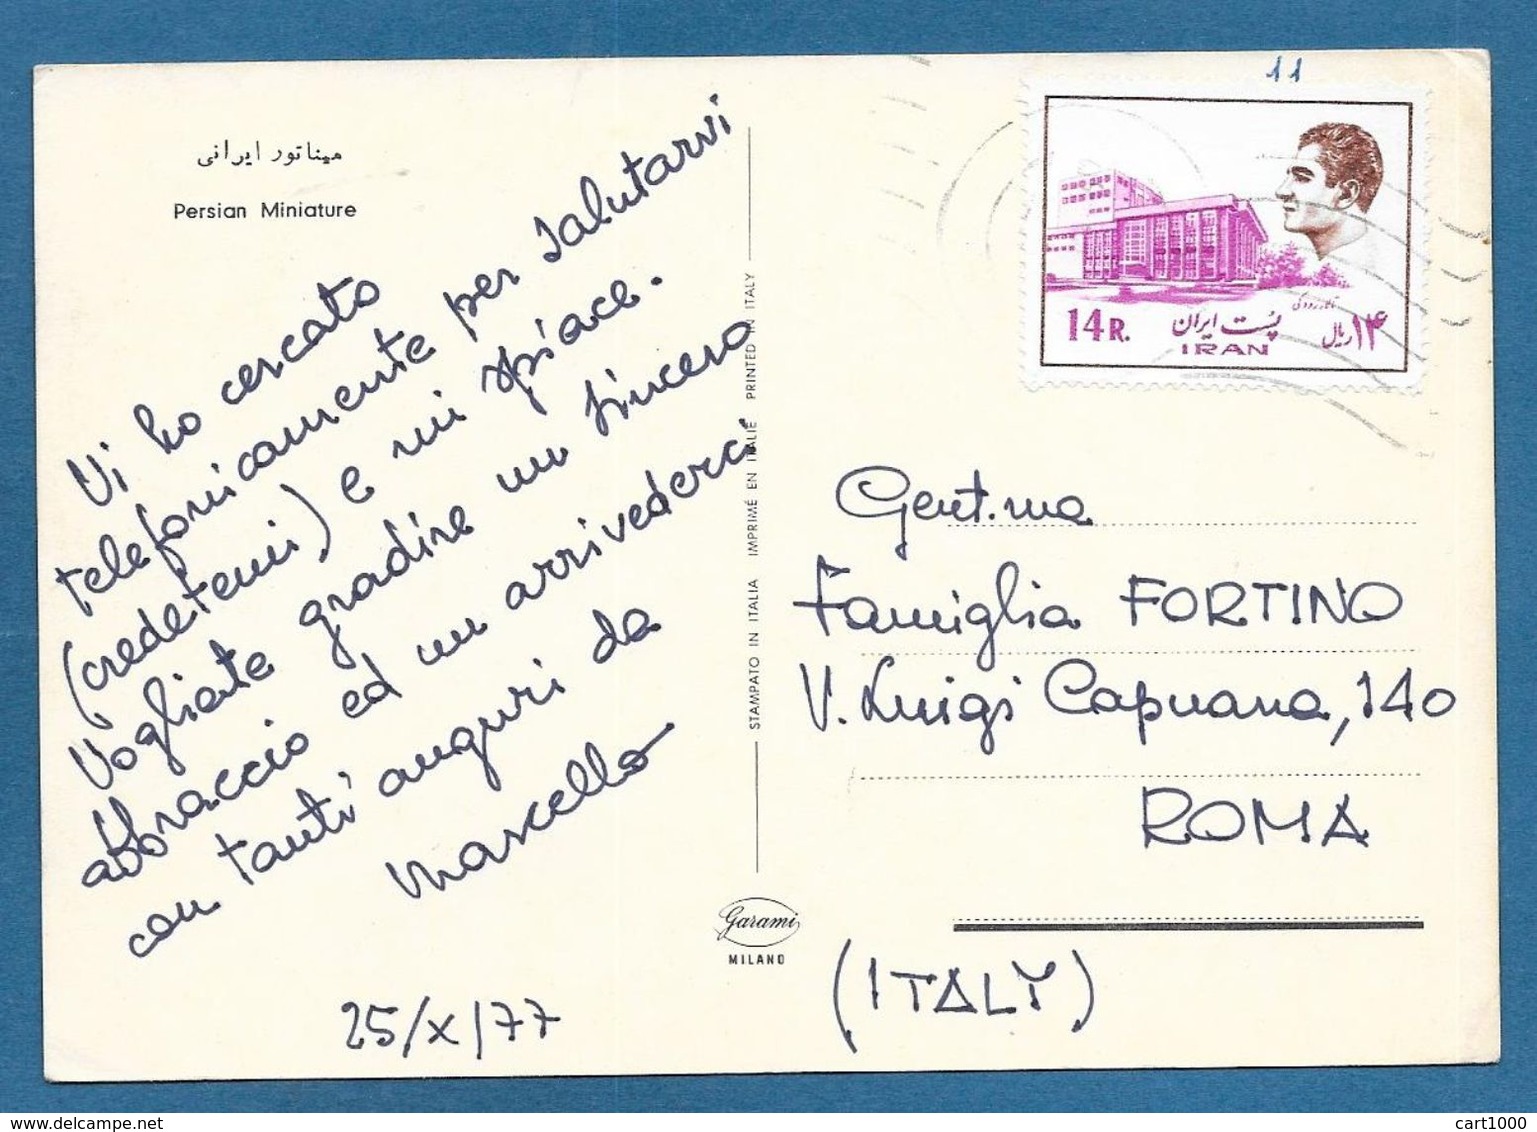 مینیاتور ایرانی
Persian Miniature
Vi ho cercato
telefonicamente per salutarvi
(credetemi) e mi spiace.
Vogliate gradire un sincero
abbraccio ed un arrivederci
con tanti auguri da
Marcello
25/X/77
STAMPATO IN ITALIA IMPRIMÉ EN ITALIE PRINTED IN ITALY
Garami
MILANO
11
تالار رودکی
14 R. پست ایران ۱۴ ریال
IRAN
Gent.ma
Famiglia FORTINO
V. Luigi Capuana, 140
ROMA
(ITALY)
cart1000